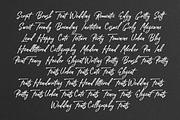 Script Brush Font Wedding Romantic Edgy Gritty Soft
Sweet Trendy Branding Invitation Casual Girly Magazines
Loud Happy Cute Texture Party Feminine Urban Blog
Handlettered Calligraphy Modern Hand Marker Pen Ink
Paint Fancy Header Elegant Writing Pretty Brush Fonts Pretty
Fonts Urban Fonts Cute Fonts Elegant
Fonts Handwritten Fonts Handlettered Fonts Wedding Fonts
Pretty Fonts Urban Fonts Cute Fonts Elegant Fonts
Wedding Fonts Calligraphy Fonts